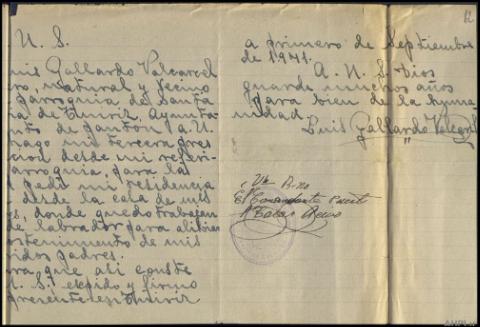 U. S.
uis Gallardo Valcarcel
ro, natural y vecino
parroquia de Santa
ia de Tuiriz, Ayunta
nto de Pantón, a U.
hago mi tercera pres
cion desde mi referi-
arroquia, para la
l pedi mi residencia
desde la casa de mis
es, donde quedo trabajan
de labrador para
ostenimiento de mis
ridos padres.
ra que así conste
U. S. expido y firmo
presente en Tuiriz
12
a primero de Septiembre
de 1941.
A. U. S. Dios
guarde muchos años
para bien de la huma
nidad.
Luis Gallardo
Vto Bno
El Comandante